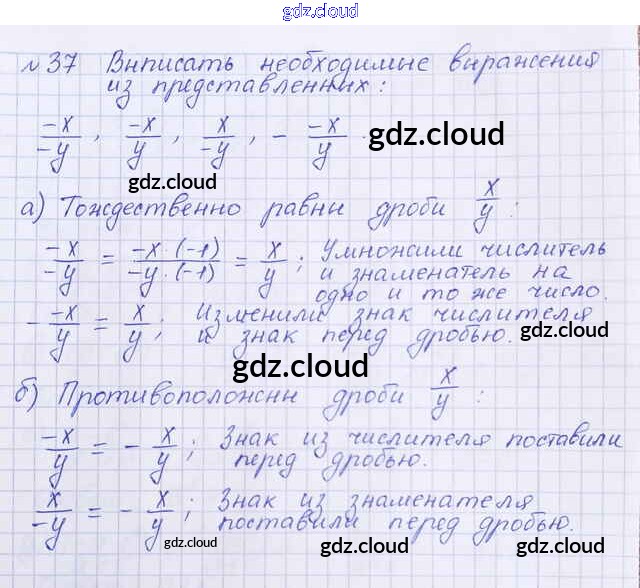 gdz.cloud
№37 Выписать необходимые выражения
из представленных:
-x/-y, -x/y, x/-y, - -x/y. gdz.cloud
gdz.cloud
а) Тождественно равны дроби x/y:
-x/-y = -x·(-1)/-y·(-1) = x/y; Умножили числитель
и знаменатель на
одно и то же число.
- -x/y = x/y; Изменили знак числителя
и знак перед дробью. gdz.cloud
gdz.cloud
б) Противоположны дроби x/y:
-x/y = - x/y; Знак из числителя поставили
перед дробью.
x/-y = - x/y; Знак из знаменателя
поставили перед дробью.
gdz.cloud gdz.cloud gdz.cloud